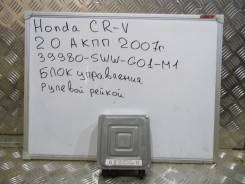 Honda CR-V
2.0 АКПП 2007г.
39980-SWW-G01-M1
БЛОК управления
рулевой рейкой